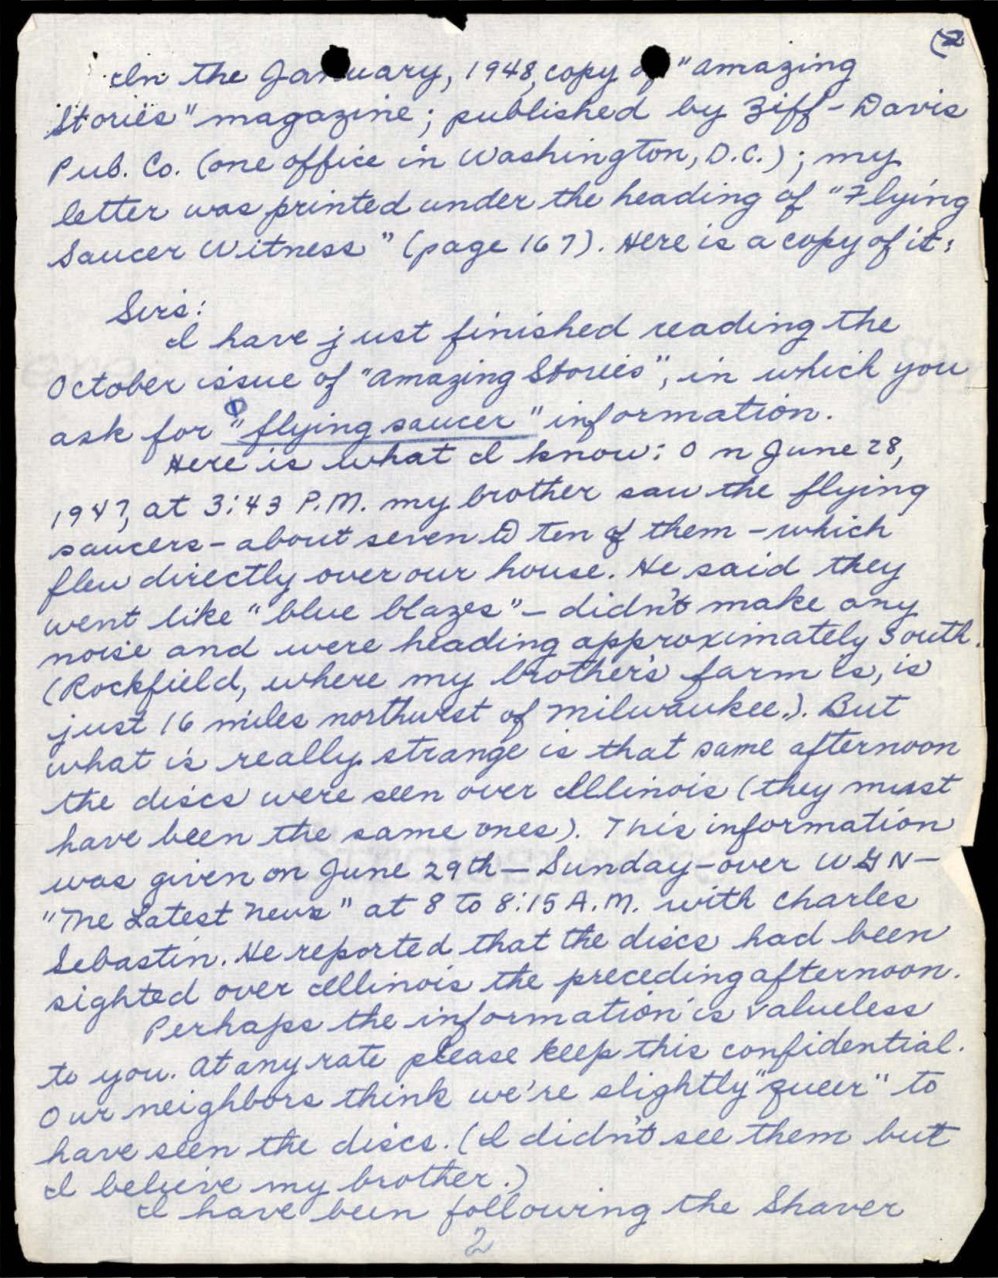 2
In the January, 1948, copy of "Amazing
Stories" magazine; published by Ziff-Davis
Pub. Co. (one office in Washington, D.C.); my
letter was printed under the heading of "Flying
Saucer Witness" (page 167). Here is a copy of it:
Sirs:
I have just finished reading the
October issue of "Amazing Stories", in which you
ask for "flying saucer" information.
Here is what I know: On June 28,
1947, at 3:43 P.M. my brother saw the flying
saucers - about seven to ten of them - which
flew directly over our house. He said they
went like "blue blazes" - didn't make any
noise and were heading approximately South.
(Rockfield, where my brother's farm is, is
just 16 miles northwest of Milwaukee.). But
what is really strange is that same afternoon
the discs were seen over Illinois (they must
have been the same ones). This information
was given on June 29th - Sunday - over WGN -
"The Latest News" at 8 to 8:15 A.M. with Charles
Sebastin. He reported that the discs had been
sighted over Illinois the preceding afternoon.
Perhaps the information is valueless
to you. At any rate please keep this confidential.
Our neighbors think we're slightly "queer" to
have seen the discs. (I didn't see them but
I believe my brother.)
I have been following the Shaver
2